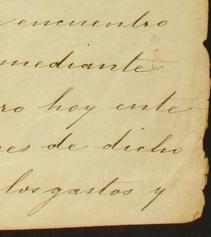 encuentro
mediante
ro hoy ente
es de dicho
los gastos y